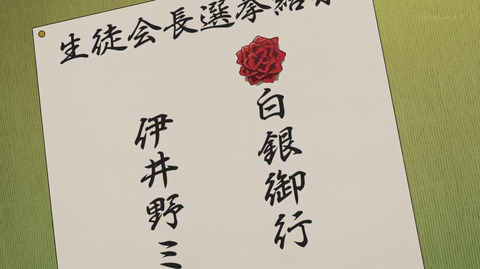 生徒会長選挙結
白銀御行
伊井野三